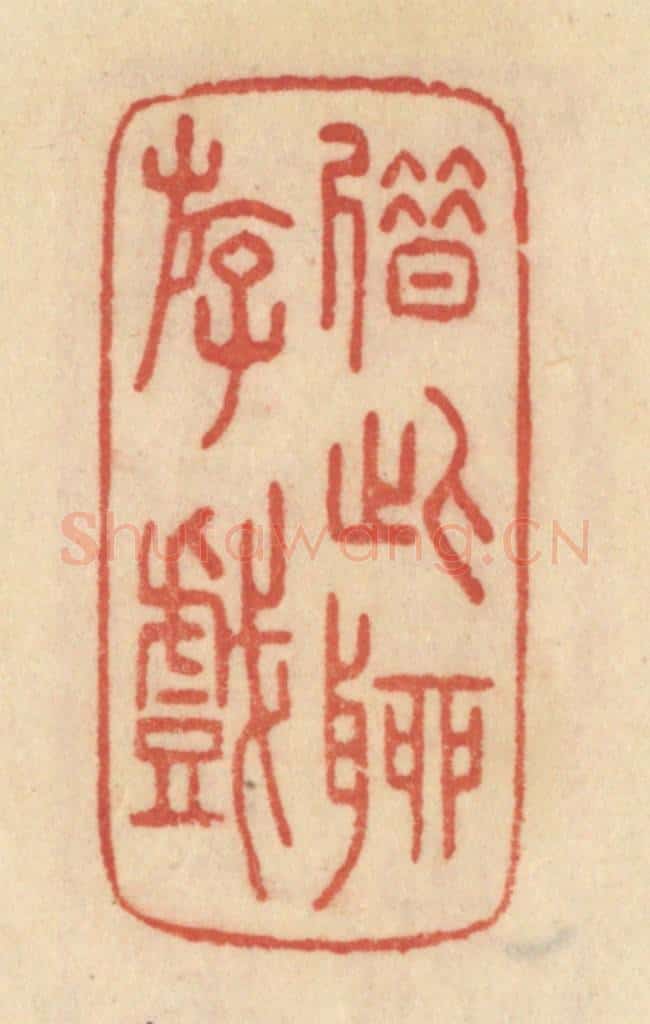 借此聊
存戲
Shufawang.CN